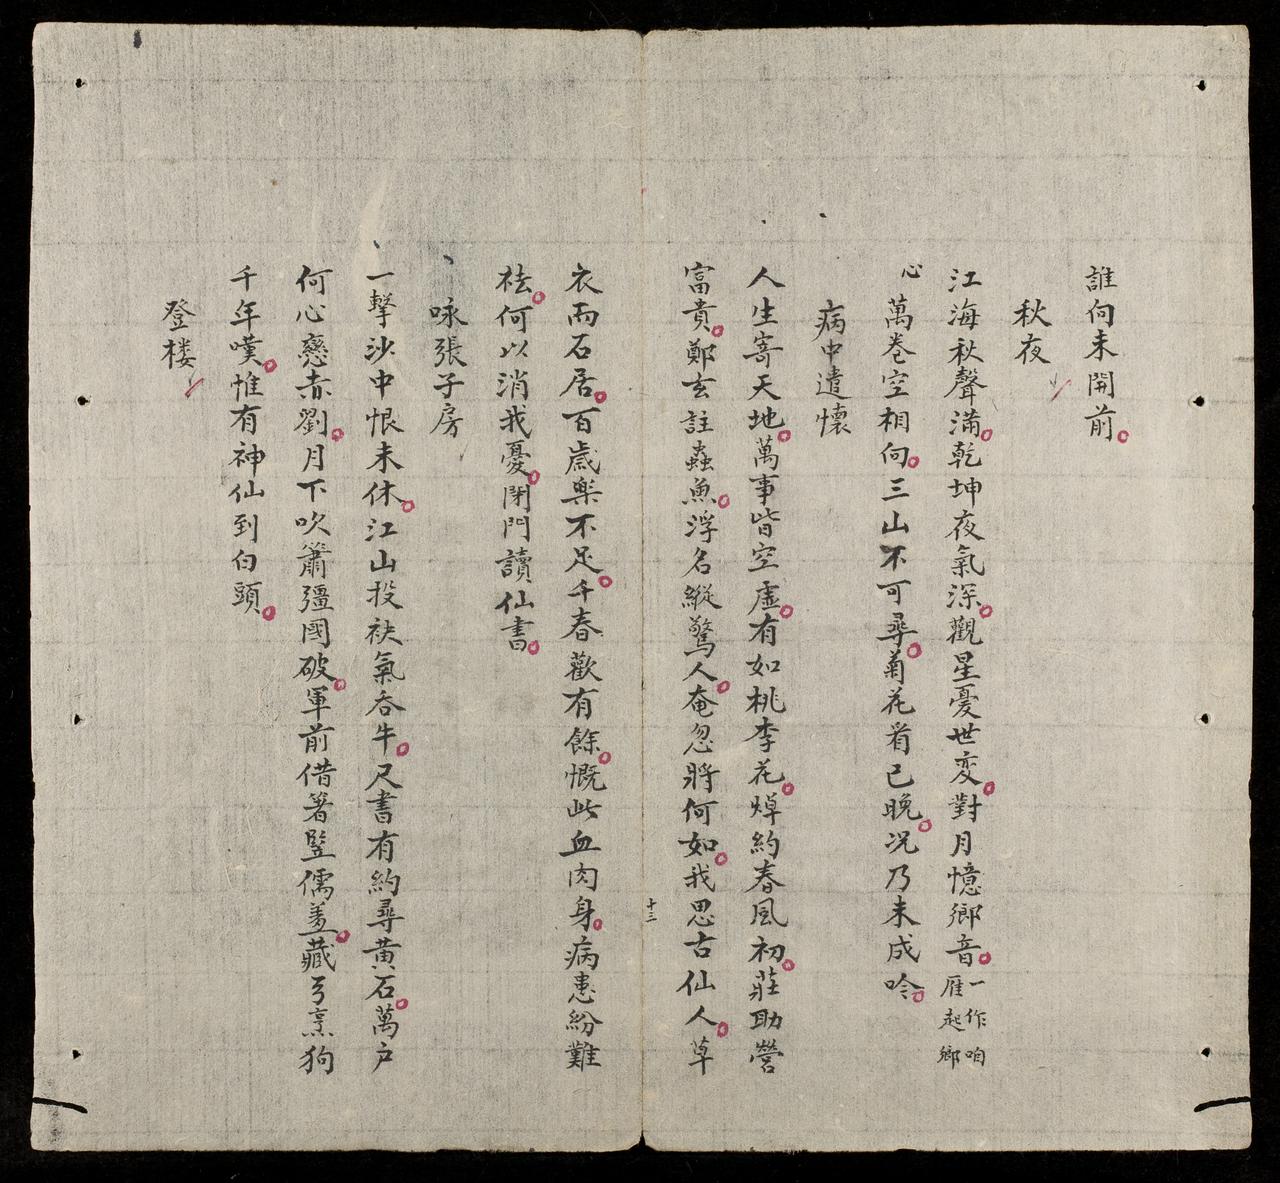 誰向未開前
秋夜
江海秋聲滿乾坤夜氣深觀星憂世変對月憶鄉音一作咱雁起鄉
心萬卷空相向三山不可尋菊花看已晚况乃未成吟
病中遣懷
人生寄天地萬事皆空虛有如桃李花焯約春風初莊助營
富貴鄭玄註蟲魚浮名縱驚人奄忽將何如我思古仙人草
十三
衣兩石居百歲樂不足千春歡有餘慨此血肉身病患紛難
祛何以消我憂閉門讀仙書
咏張子房
一擊沙中恨未休江山投袂氣吞牛尺書有約尋黃石萬戶
何心戀赤劉月下吹簫彊國破軍前借箸豎儒羞藏弓烹狗
千年嘆惟有神仙到白頭
登楼